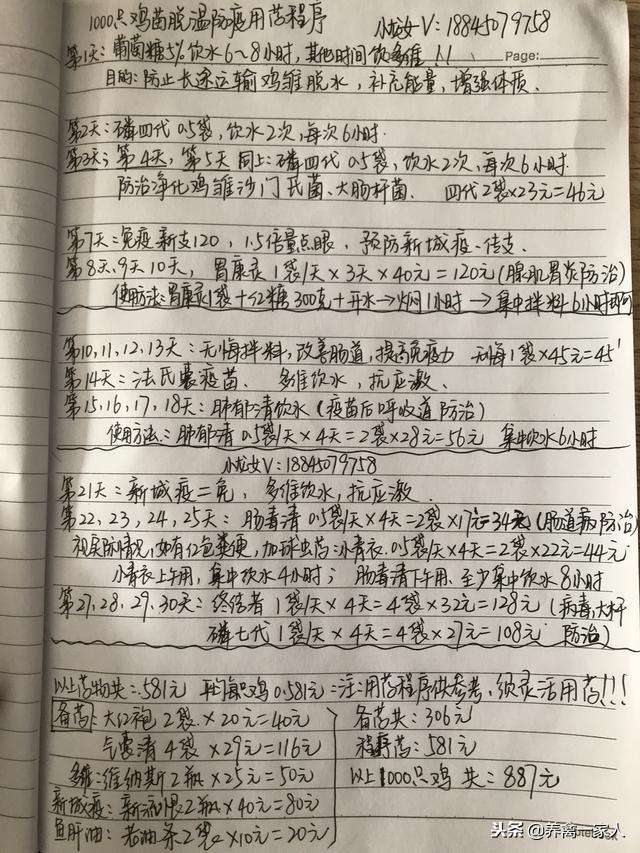 1000只鸡苗脱温防疫用药程序 小龙女V:18845079758
第1天:葡萄糖5%饮水6~8小时,其他时间饮多维!! Page:
目的:防止长途运输鸡雏脱水,补充能量,增强体质.
第2天:磷四代0.5袋,饮水2次,每次6小时.
第3天;第4天,第5天同上:磷四代0.5袋,饮水2次,每次6小时.
防治净化鸡雏沙门氏菌、大肠杆菌. 四代2袋×23元=46元
第7天:免疫新支120,1.5倍量点眼,预防新城疫、传支.
第8天、9天10天,胃康灵1袋/天×3天×40元=120元(腺肌胃炎防治)
使用方法:胃康灵1袋+红糖300克+开水→焖1小时→集中拌料6小时即可
第10,11,12,13天:无悔拌料,改善肠道,提高免疫力 无悔1袋×45元=45
第14天:法氏囊疫苗. 多维饮水,抗应激.
第15,16,17,18天:肺郁清饮水(疫苗后呼吸道防治)
使用方法:肺郁清0.5袋/天×4天=2袋×28元=56元 集中饮水6小时
小龙女V:18845079758
第21天:新城疫二免,多维饮水,抗应激.
第22,23,24,25天:肠毒清0.5袋/天×4天=2袋×17元=34元(肠道病防治)
视实际情况,如有红色粪便,加球虫药:小青衣.0.5袋/天×4天=2袋×22元=44元
小青衣上午用,集中饮水4小时;肠毒清下午用.至少集中饮水8小时
第27,28,29,30天:终结者1袋/天×4天=4袋×32元=128元(病毒大杆
磷七代1袋/天×4天=4袋×27元=108元 防治)
以上药物共:581元 平均每只鸡0.581元 注:用药程序供参考,须灵活用药!!!
备药:大红袍2袋×20元=40元 备药共:306元
气囊清4袋×29元=116元 程序药:581元
多维:维纳斯2瓶×25元=50元 以上1000只鸡共:887元
新城疫:新流恨2瓶×40元=80元
鱼肝油:若油条2袋×10元=20元
头条@养禽一家人